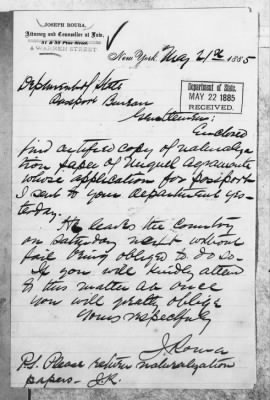 JOSEPH ROURA,
Attorney and Counsellor at Law,
51 & 53 Pine Street
4 WARREN STREET
New York, May 21st 1885
Department of State
Passport Bureau
Department of State.
MAY 22 1885
RECEIVED.
Gentlemen:
Enclosed
find certified copy of naturaliza
tion paper of Miguel Agramonte
whose application for passport
I sent to your department yes-
terday.
He leaves the country
on Saturday next without
fail being obliged to do so.
If you will kindly attend
to this matter at once
you will greatly oblige
Yours respectfully
J. Roura
P.S. Please return naturalization
papers. J.R.